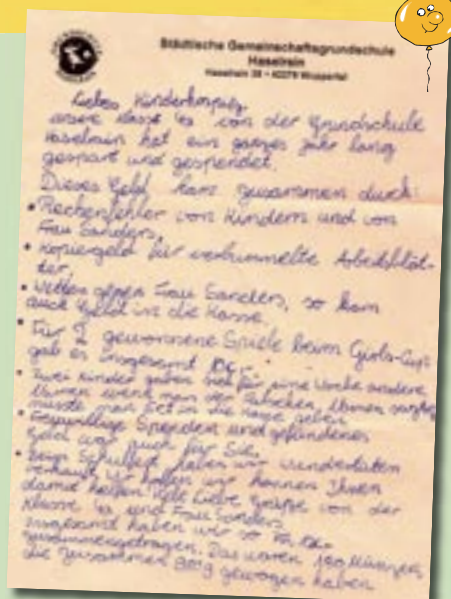 Städtische Gemeinschaftsgrundschule
Haselrain
Haselrain 38 • 42279 Wuppertal
Liebes Kinderhospiz,
unsere Klasse von der Grundschule
Haselrain hat ein ganzes Jahr lang
gespart und gespendet.
Dieses Geld kam zusammen durch:
• Rechenfehler von Kindern und von
Frau Sanders,
• Kopiergeld für verbummelte Arbeitsblät-
ter,
• Wetten gegen Frau Sanders, so kam
auch Geld in die Kasse.
• Für gewonnene Spiele beim Girls-Cup
gab es insgesamt
• Zwei Kinder gaben sich für eine Woche andere
Namen wenn man der
musste man in die geben
• Freiwillige Spenden und gefundenes
Geld war auch für Sie.
• Beim Schulfest haben wir Wundertüten
verkauft. Wir hoffen wir können Ihnen
damit helfen. Viele Liebe Grüße von der
Klasse und Frau Sanders
Insgesamt haben wir so
zusammengetragen. Das waren Münzen,
die zusammen gewogen haben